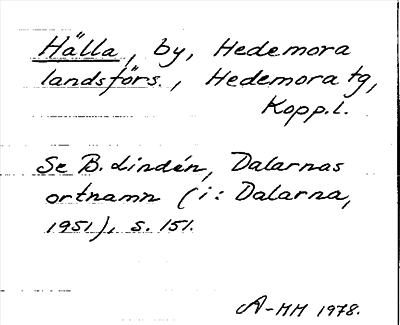 Hälla, by, Hedemora
landsförs., Hedemora tg,
Kopp.l.
Se B. Lindén, Dalarnas
ortnamn (i: Dalarna,
1951), s. 151.
A-MM 1978.